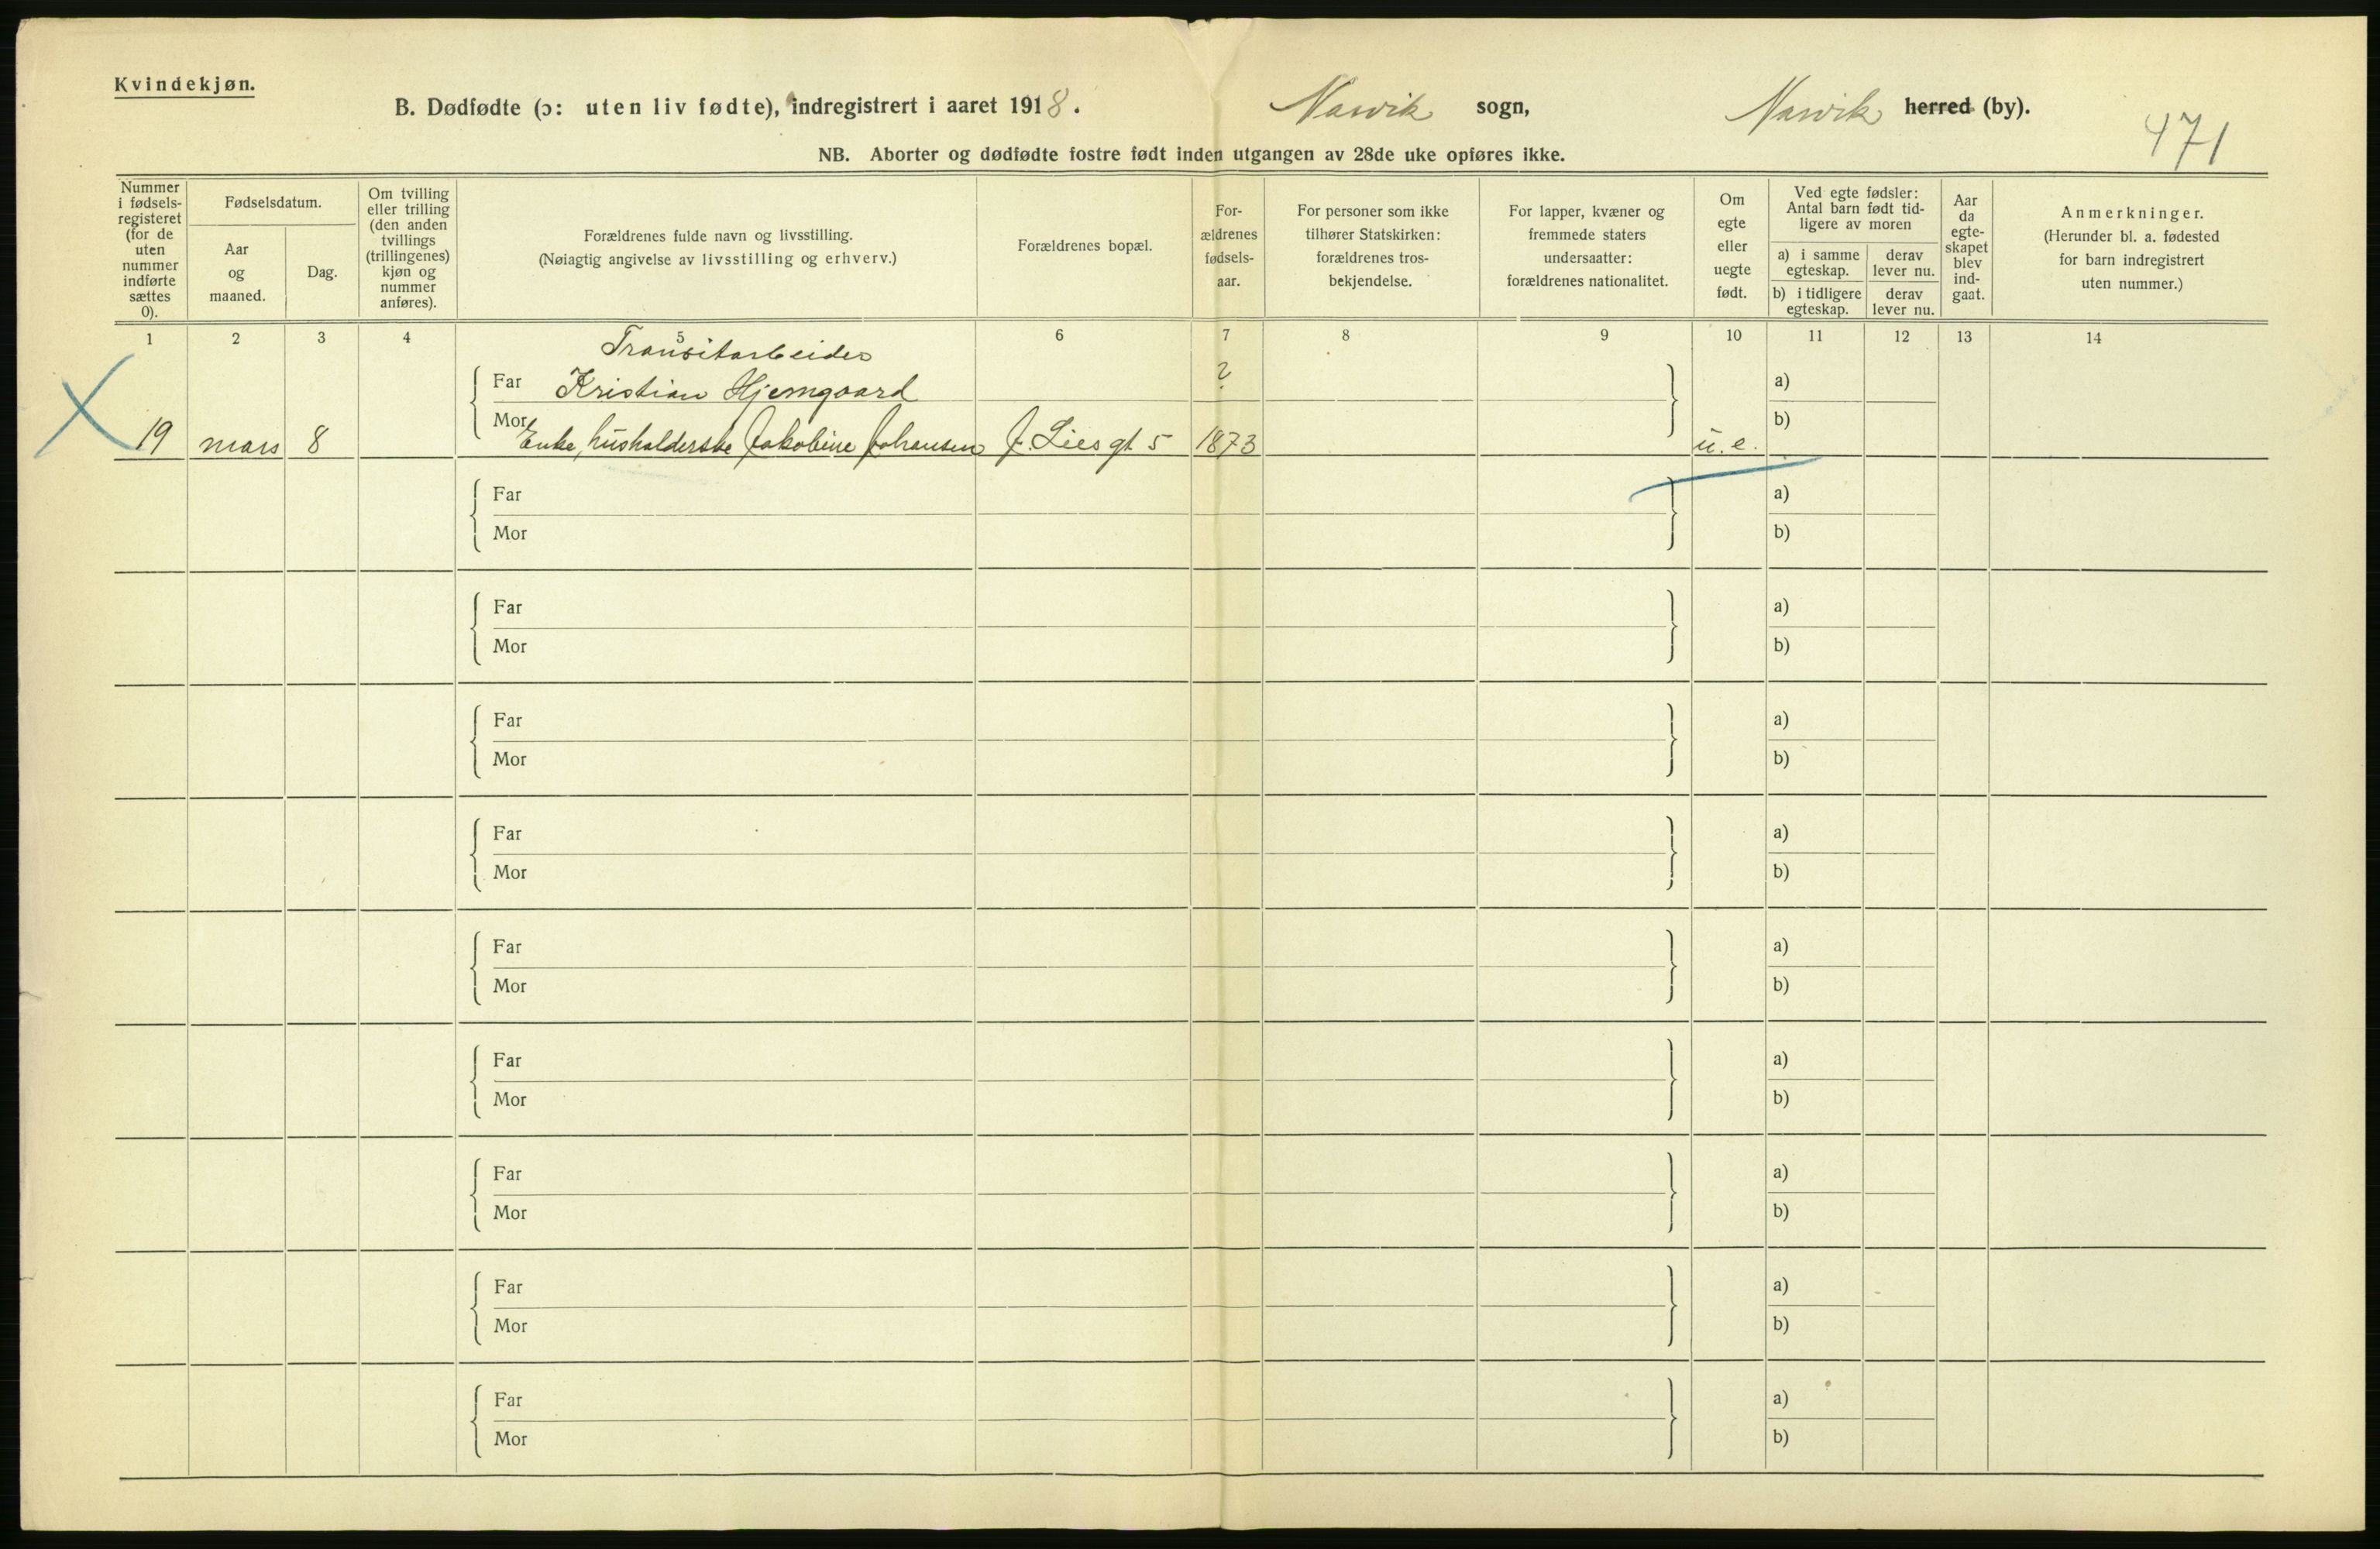 Kvindekjøn.
B. Dødfødte (ɔ: uten liv fødte), indregistrert i aaret 1918. Narvik sogn, Narvik herred (by).
471
NB. Aborter og dødfødte fostre født inden utgangen av 28de uke opføres ikke.
Nummer
i fødsels-
registeret
(for de
uten
nummer
indførte
sættes
0).
Fødselsdatum.
Aar
og
maaned.
Dag.
Om tvilling
eller trilling
(den anden
tvillings
(trillingenes)
kjøn og
nummer
anføres).
Forældrenes fulde navn og livsstilling.
(Nøiagtig angivelse av livsstilling og erhverv.)
Forældrenes bopæl.
For-
ældrenes
fødsels-
aar.
For personer som ikke
tilhører Statskirken:
forældrenes tros-
bekjendelse.
For lapper, kvæner og
fremmede staters
undersaatter:
forældrenes nationalitet.
Om
egte
eller
uegte
født.
Ved egte fødsler:
Antal barn født tid-
ligere av moren
a) i samme
egteskap.
derav
lever nu.
b) i tidligere
egteskap.
derav
lever nu.
Aar
da
egte-
skapet
blev
ind-
gaat.
Anmerkninger.
(Herunder bl. a. fødested
for barn indregistrert
uten nummer.)
1 2 3 4 5 6 7 8 9 10 11 12 13 14
Transitarbeider
Far Kristian Hjemgaard ? a)
Mor b)
19 mars 8 Enke, husholderske Jakobine Johansen J. Lies gt 5 1873 u. e.
Far a)
Mor b)
Far a)
Mor b)
Far a)
Mor b)
Far a)
Mor b)
Far a)
Mor b)
Far a)
Mor b)
Far a)
Mor b)
Far a)
Mor b)
Far a)
Mor b)